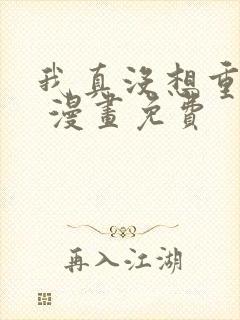 我真没想重
漫畫免費
再入江湖